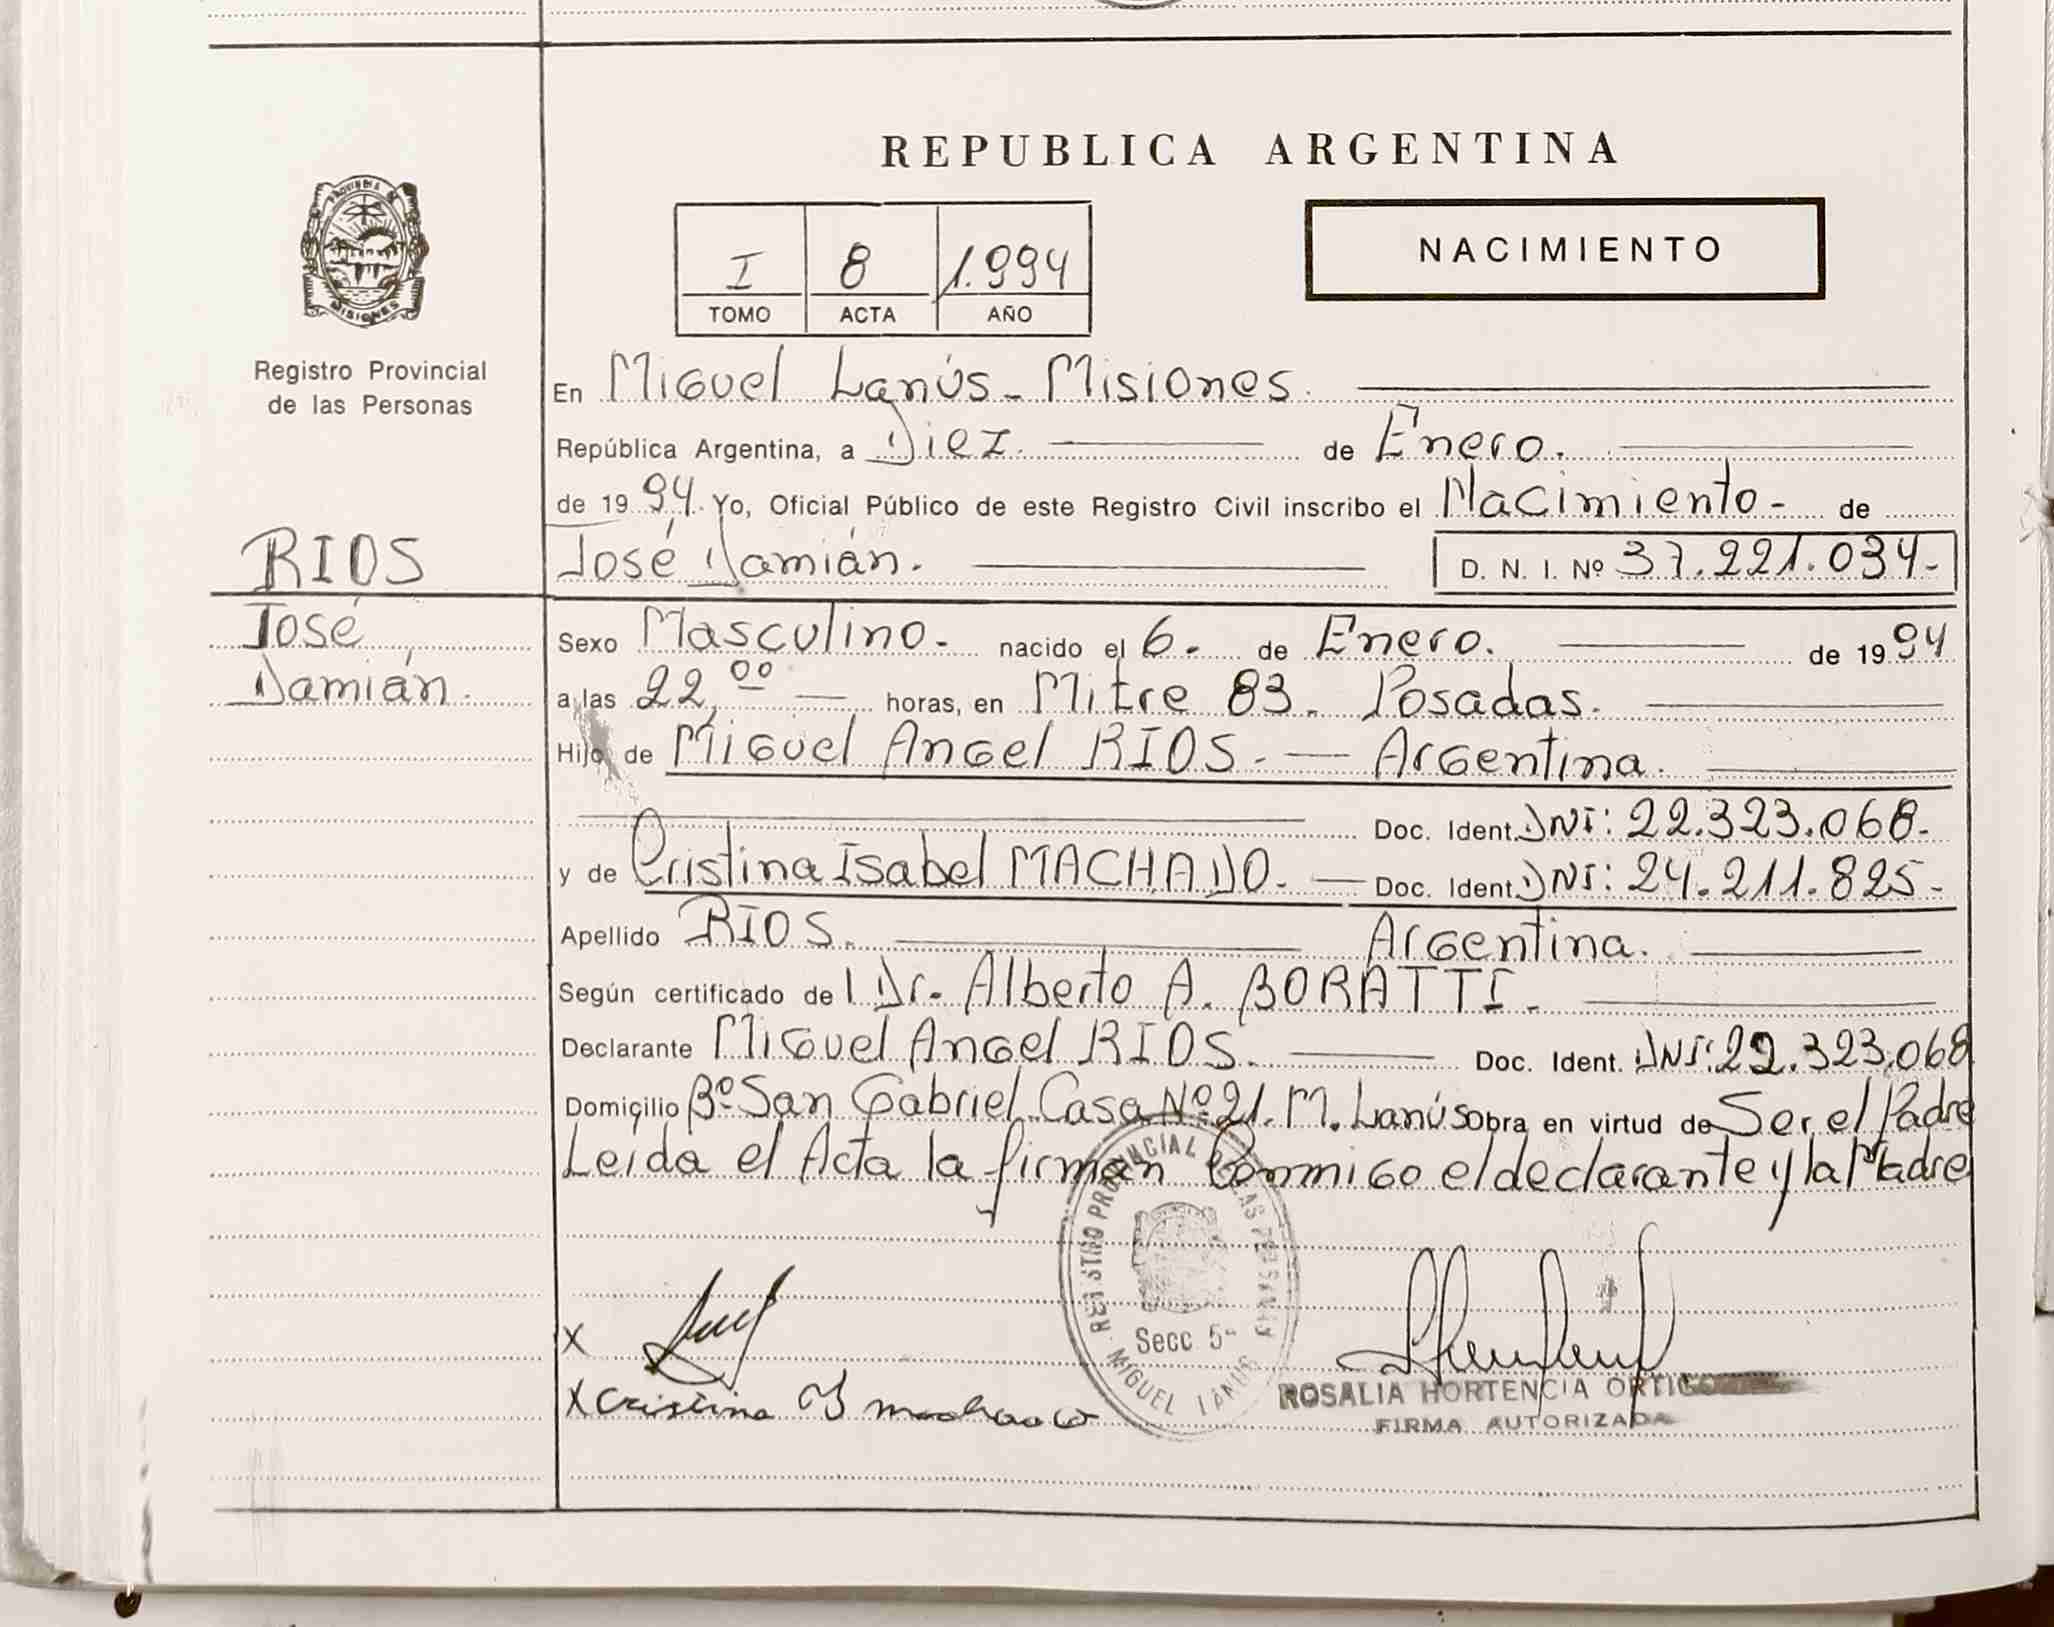 REPUBLICA ARGENTINA
NACIMIENTO
I 8 1.994
TOMO ACTA AÑO
PROVINCIA DE
MISIONES
Registro Provincial
de las Personas
RIOS
José
Damián.
En Miguel Lanús - Misiones.
República Argentina, a Diez. de Enero.
de 1994. Yo, Oficial Público de este Registro Civil inscribo el Nacimiento - de
José Damián. D. N. I. Nº 37.221.034.-
Sexo Masculino. nacido el 6. de Enero. de 1994
a las 22,00 horas, en Mitre 83. Posadas.
Hijo de Miguel Angel RIOS. — Argentina.
Doc. Ident. DNI: 22.323.068.
y de Cristina Isabel MACHADO. — Doc. Ident. DNI: 24.211.825.
Apellido RIOS. Argentina.
Según certificado del Dr. Alberto A. BORATTI.
Declarante Miguel Angel RIOS. Doc. Ident. DNI: 22.323.068
Domicilio Bº San Gabriel. Casa Nº 21. M. Lanús obra en virtud de Ser el Padre
Leída el Acta la firman Conmigo el declarante y la Madre
REGISTRO PROVINCIAL DE LAS PERSONAS
Secc 5ª
MIGUEL LANUS
X
X Cristina I machado
ROSALIA HORTENCIA
FIRMA AUTORIZADA